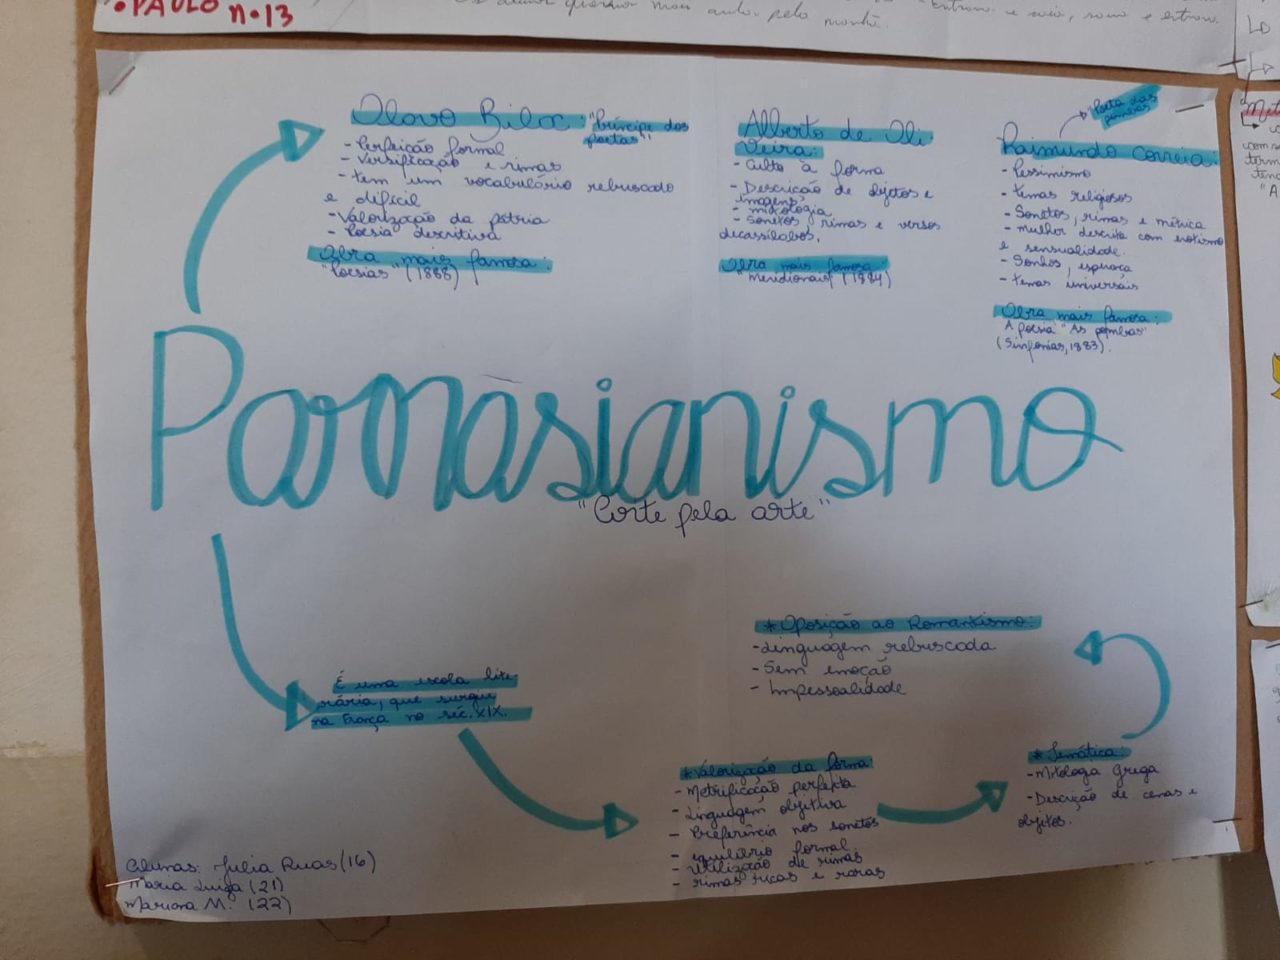 •PAULO n.13
Olavo Bilac: "Príncipe dos
poetas"
- Perfeição formal
- Versificação e rimas
- tem um vocabulário rebuscado
e difícil
- Valorização da pátria
- Poesia descritiva
Obra mais famosa:
"Poesias" (1888)
Alberto de Oli
veira:
- Culto à forma
- Descrição de objetos e
imagens
- mitologia
- Sonetos rimas e versos
decassílabos.
Obra mais famosa
"Meridionais" (1884)
Poeta das
pombas
Raimundo Correia:
- Pessimismo
- temas religiosos
- Sonetos, rimas e métrica
- mulher descrita com erotismo
e sensualidade.
- Sonhos, esperança
- temas universais
Obra mais famosa:
A poesia "As pombas"
(Sinfonias, 1883).
Parnasianismo
"Corte pela arte"
É uma escola lite
rária, que surgiu
na França no séc. XIX.
* Valorização da forma
- Metrificação perfeita
- Linguagem objetiva
- Preferência nos sonetos
- equilíbrio formal
- Utilização de rimas
- rimas ricas e raras
* Temática:
- Mitologa Grega
- Descrição de cenas e
objetos.
* Oposição ao Romantismo:
- Linguagem rebuscada
- Sem emoção
- Impessoalidade
Alunas: Julia Ruas (16)
Maria Luiza (21)
Mariana M. (22)